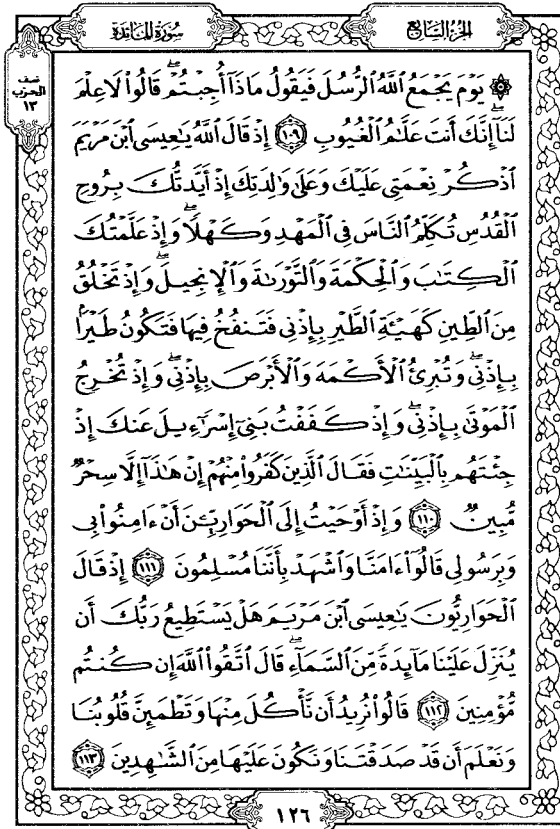 الجزء السابع
سورة المائدة
نصف
الحزب
١٣
۞ يَوْمَ يَجْمَعُ ٱللَّهُ ٱلرُّسُلَ فَيَقُولُ مَاذَآ أُجِبْتُمْ ۖ قَالُوا۟ لَا عِلْمَ
لَنَآ ۖ إِنَّكَ أَنتَ عَلَّـٰمُ ٱلْغُيُوبِ ١٠٩ إِذْ قَالَ ٱللَّهُ يَـٰعِيسَى ٱبْنَ مَرْيَمَ
ٱذْكُرْ نِعْمَتِى عَلَيْكَ وَعَلَىٰ وَٰلِدَتِكَ إِذْ أَيَّدتُّكَ بِرُوحِ
ٱلْقُدُسِ تُكَلِّمُ ٱلنَّاسَ فِى ٱلْمَهْدِ وَكَهْلًا ۖ وَإِذْ عَلَّمْتُكَ
ٱلْكِتَـٰبَ وَٱلْحِكْمَةَ وَٱلتَّوْرَىٰةَ وَٱلْإِنجِيلَ ۖ وَإِذْ تَخْلُقُ
مِنَ ٱلطِّينِ كَهَيْـَٔةِ ٱلطَّيْرِ بِإِذْنِى فَتَنفُخُ فِيهَا فَتَكُونُ طَيْرًۢا
بِإِذْنِى ۖ وَتُبْرِئُ ٱلْأَكْمَهَ وَٱلْأَبْرَصَ بِإِذْنِى ۖ وَإِذْ تُخْرِجُ
ٱلْمَوْتَىٰ بِإِذْنِى ۖ وَإِذْ كَفَفْتُ بَنِىٓ إِسْرَٰٓءِيلَ عَنكَ إِذْ
جِئْتَهُم بِٱلْبَيِّنَـٰتِ فَقَالَ ٱلَّذِينَ كَفَرُوا۟ مِنْهُمْ إِنْ هَـٰذَآ إِلَّا سِحْرٌ
مُّبِينٌ ١١٠ وَإِذْ أَوْحَيْتُ إِلَى ٱلْحَوَارِيِّـۧنَ أَنْ ءَامِنُوا۟ بِى
وَبِرَسُولِى قَالُوٓا۟ ءَامَنَّا وَٱشْهَدْ بِأَنَّنَا مُسْلِمُونَ ١١١ إِذْ قَالَ
ٱلْحَوَارِيُّونَ يَـٰعِيسَى ٱبْنَ مَرْيَمَ هَلْ يَسْتَطِيعُ رَبُّكَ أَن
يُنَزِّلَ عَلَيْنَا مَآئِدَةً مِّنَ ٱلسَّمَآءِ ۖ قَالَ ٱتَّقُوا۟ ٱللَّهَ إِن كُنتُم
مُّؤْمِنِينَ ١١٢ قَالُوا۟ نُرِيدُ أَن نَّأْكُلَ مِنْهَا وَتَطْمَئِنَّ قُلُوبُنَا
وَنَعْلَمَ أَن قَدْ صَدَقْتَنَا وَنَكُونَ عَلَيْهَا مِنَ ٱلشَّـٰهِدِينَ ١١٣
١٢٦